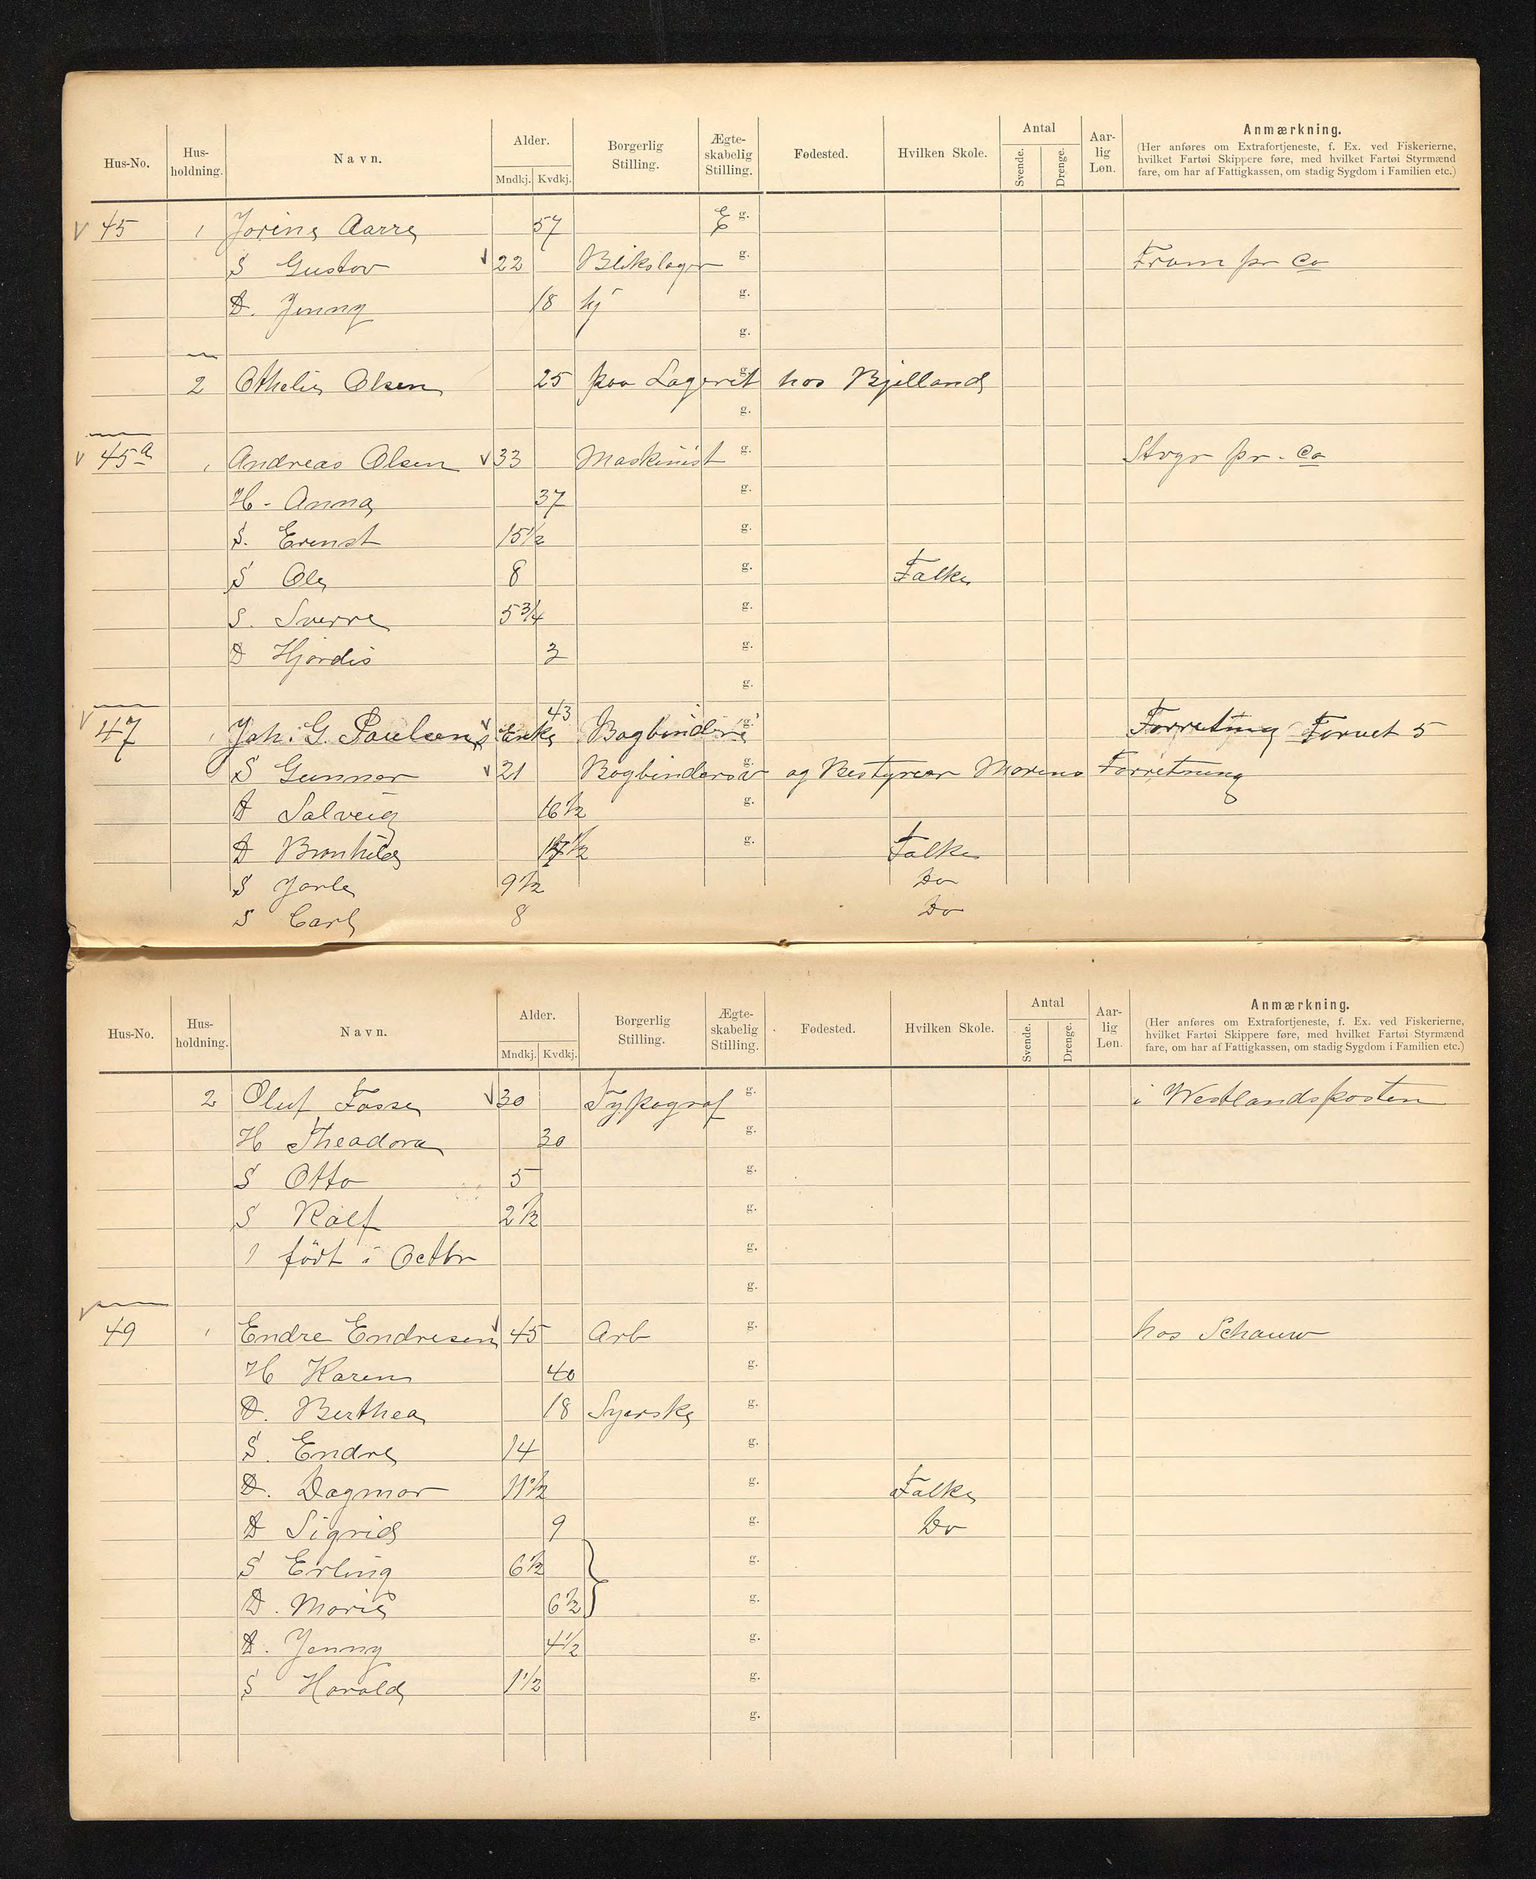 Hus-No. Hus-holdning. Navn. Alder. Mndkj. Kvdkj. Borgerlig Stilling. Ægte-skabelig Stilling. Fødested. Hvilken Skole. Antal Svende. Drenge. Aar-lig Løn. Anmærkning.
(Her anføres om Extrafortjeneste, f. Ex. ved Fiskerierne, hvilket Fartøi Skippere føre, med hvilket Fartøi Styrmænd fare, om har af Fattigkassen, om stadig Sygdom i Familien etc.)
45 1 Jorine Aarre 57 E g.
S Gustav 22 Blikslager g. Fram pr Co
D. Jenny 18 hj g.
g.
2 Othelie Olsen 25 paa Lageret g. hos Bjelland
g.
45 a 1 Andreas Olsen 33 Maskinist g. Stvgr pr. Co
H. Anna 37 g.
S. Ernst 15 1/2 g.
S Ole 8 g. Folke
S. Sverre 5 3/4 g.
D Hjørdis 3 g.
g.
47 1 Joh. G. Paulsens Enke 43 Bogbinderi g. Forretning Torvet 5
S Gunnar 21 Bogbindersv g. og Bestyrer Morens Forretning
D Solveig 16 1/2 g.
D Bronhild 1/2 g. Folke
S Jarle 9 1/2 Do
S Carl 8 Do
Hus-No. Hus-holdning. Navn. Alder. Mndkj. Kvdkj. Borgerlig Stilling. Ægte-skabelig Stilling. Fødested. Hvilken Skole. Antal Svende. Drenge. Aar-lig Løn. Anmærkning.
(Her anføres om Extrafortjeneste, f. Ex. ved Fiskerierne, hvilket Fartøi Skippere føre, med hvilket Fartøi Styrmænd fare, om har af Fattigkassen, om stadig Sygdom i Familien etc.)
2 Oluf Fosse 30 Typograf g. i Westlandsposten
H Theodora 30 g.
S Otto 5 g.
S Ralf 2 1/2 g.
1 født i Octbr g.
g.
49 1 Endre Endresen 45 Arb g. hos Schauw
H Karen 40 g.
D. Berthea 18 Syerske g.
S. Endre 14 g.
D. Dagmar 11 1/2 g. Folke
D Sigrid 9 g. Do
S Erling 6 1/2 g.
D. Marie 6 1/2 g.
D. Jenny 4 1/2 g.
S Harald 1 1/2 g.
g.